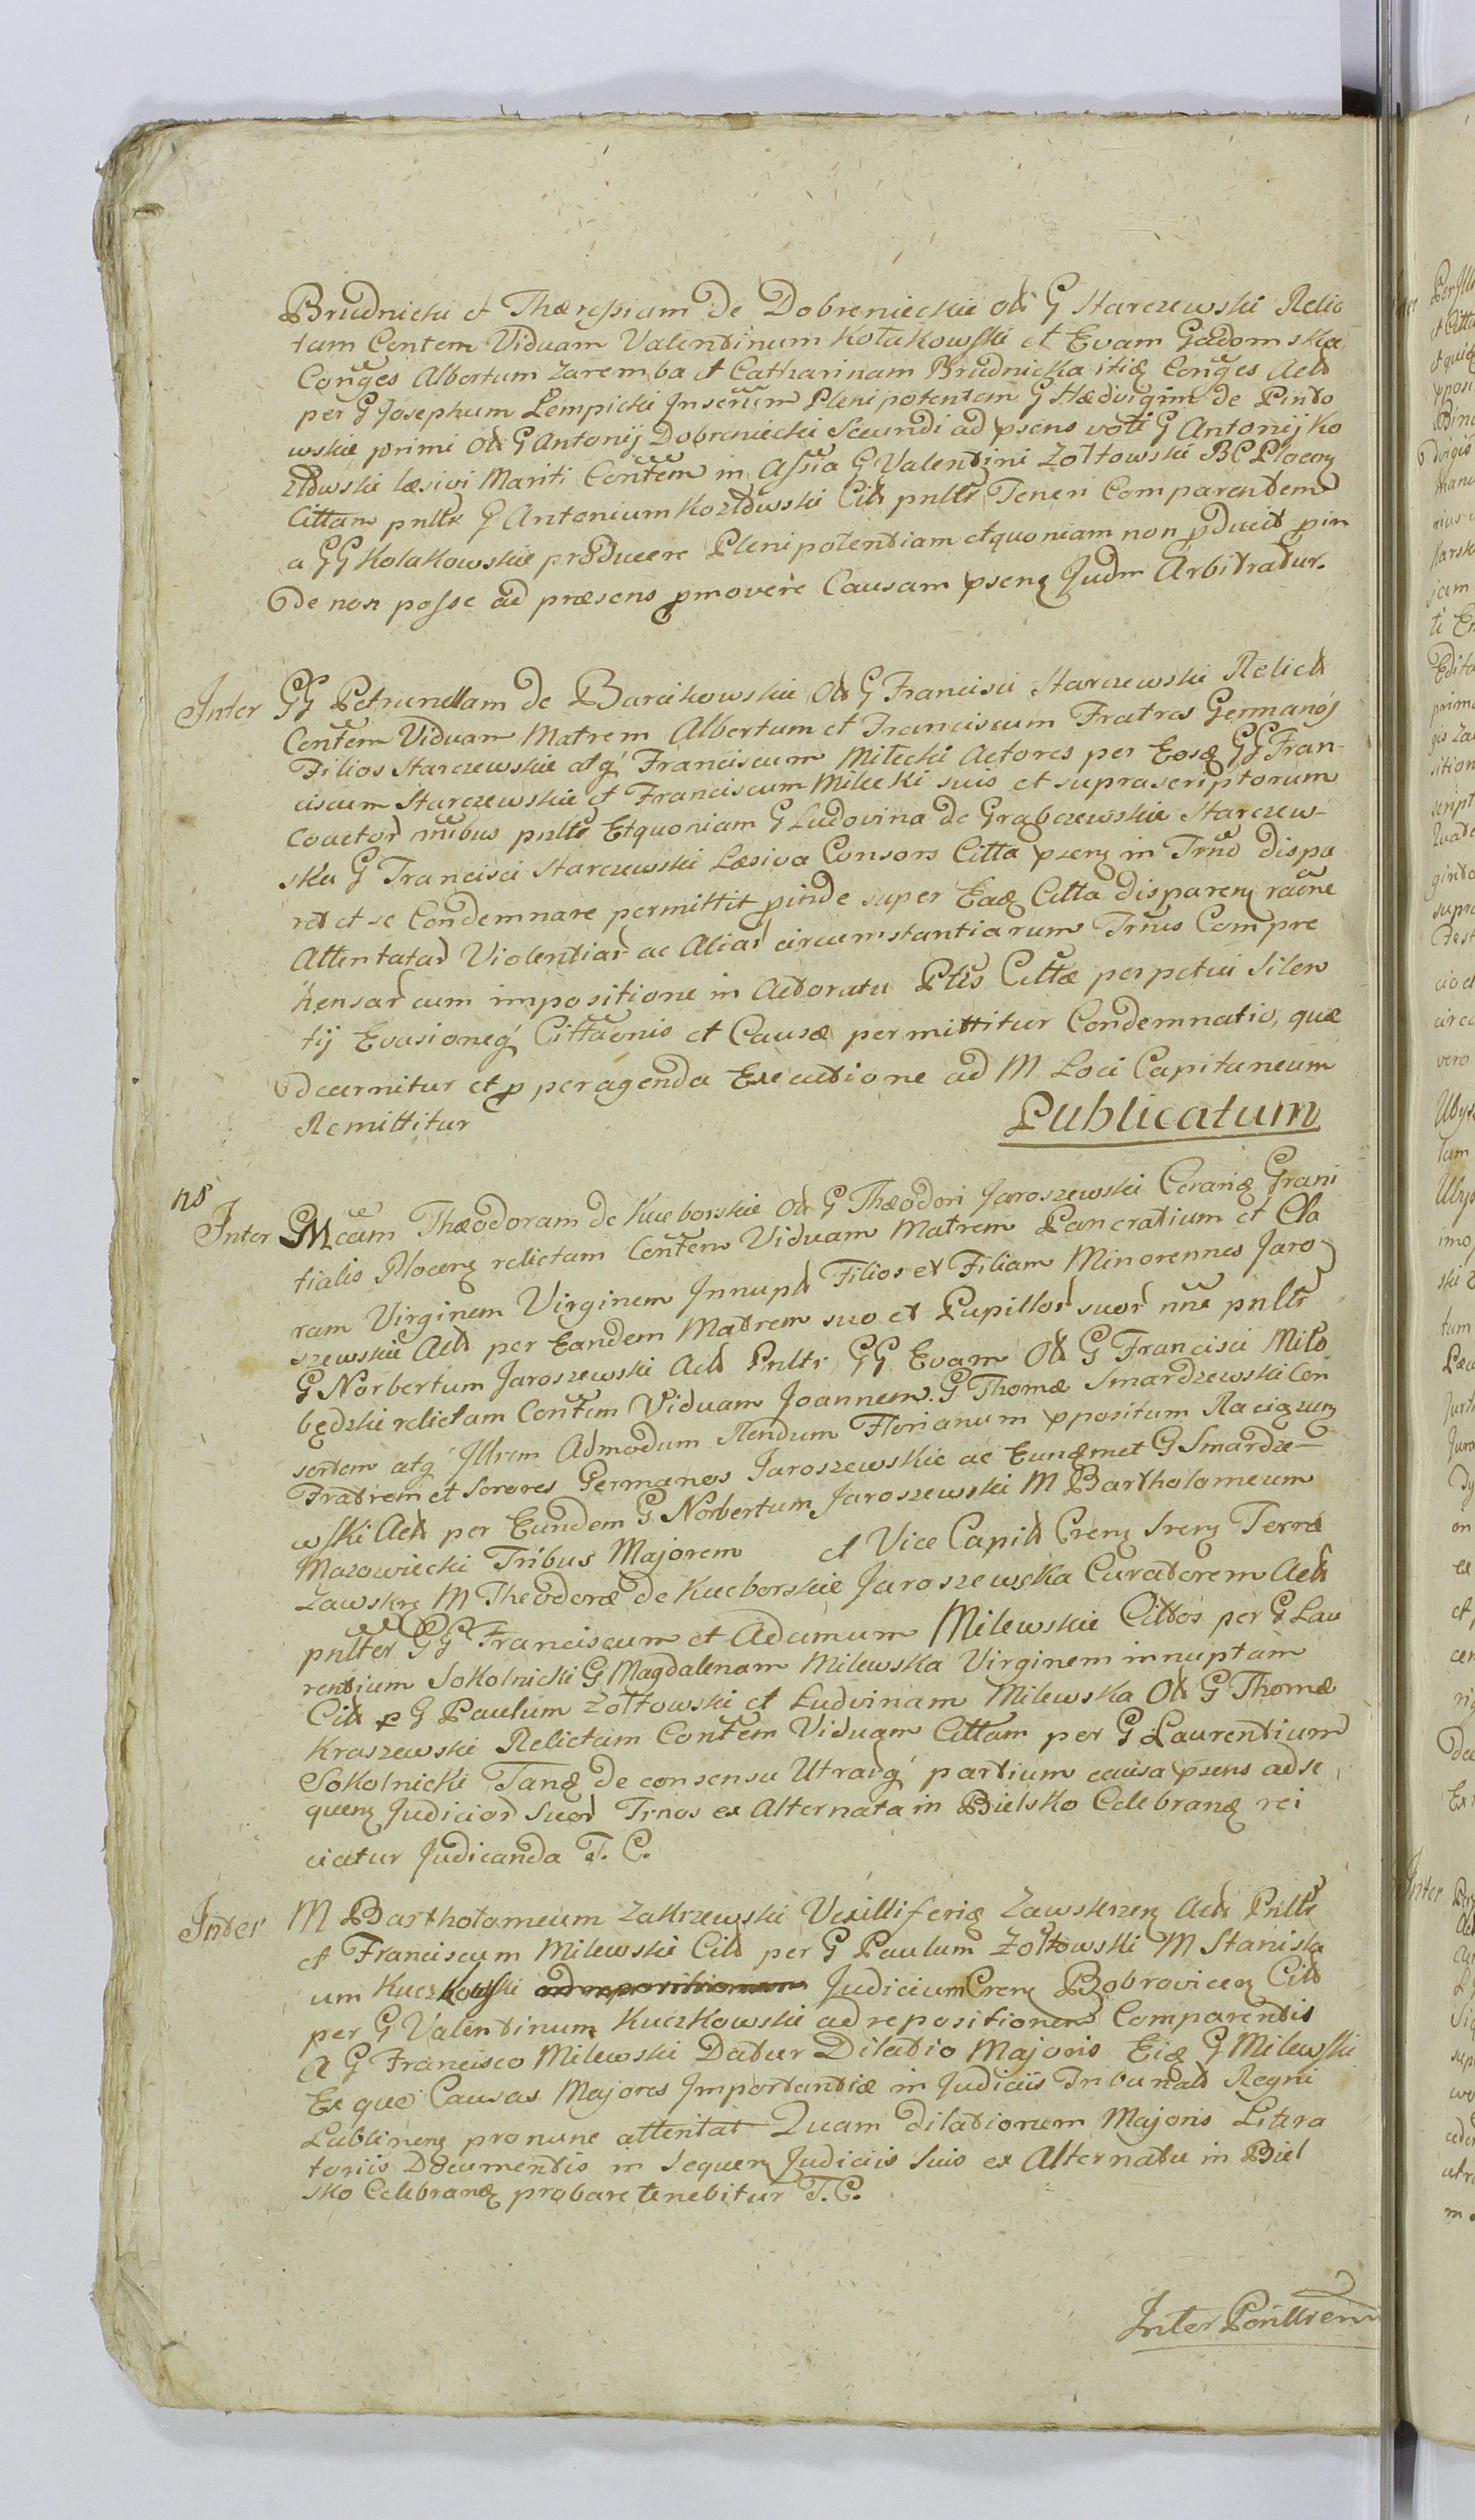 Brudnicki et Thæressiam de Dobrenieckie olt G Starczewski Relic
tam Contem Viduam Valentinum Kołakowski et Evam Gadomska
Conges Albertum Zaremba et Catharinam Brudnicka itiq Conges Actt
per G Josephum Lempicki Inserum Plenipotentem G Hædvigim de Pinto
wskie primi olt G Antonij Dobreniecki Secundi ad psens voti G Antonij Ko
złowski læsivi Mariti Contem in Assia G Valentini Zołtowski BC Plocen
Cittam pnltr G Antonium Kozłowski Citt pnltr Teneri Comparentem
a GG Kołakowskie producere Plenipotentiam etquoniam non pducit pin
de non posse ad præsens pmovere Causam psens Judm Arbitratur.
Inter GG Petrunellam de Barcikowskie olt G Francisci Starczewski Relict
Contem Viduam Matrem Albertum et Franciscum Fratres Germanos
Filios Starczewskie atq Franciscum Miłecki Actores per Eosq GG Fran-
ciscum Starczewskie et Franciscum Milecki suis et suprascriptorum
Coactor nnibus pnltr Etquoniam G Ludovina de Grabczewskie Starczew-
ska G Francisci Starczewski Læsiva Consors Citta psens in Trno dispa
ret et se Condemnare permittit pinde super Eaq Citta disparen raone
Attentatar Violentiar ac Aliar circumstantiarum Trnus Compre
hensar cum impositione in Actoratu Ptis Cittæ perpetui Silen
tij Evasioneq Cittaonis et Causæ permittitur Condemnatio, quæ
decernitur et p peragenda Executione ad M Loci Capitaneum
Remittitur
Publicatum
ns
Inter GM cum Thæodoram de Kucborskie olt G Thæodori Jaroszewski Cerariq Grani
tialis Plocen relictam Contem Viduam Matrem Pancratium et Cla
ram Virginem Virginem Innupt Filios et Filiam Minorennes Jaro
szewskie Actt per Eandem Matrem suo et Pupillor suor nne pnltr
G Norbertum Jaroszewski Actt Pnltr GG Evam Olt G Francisci Miło
będzki relictam Contem Viduam Joannem G Thomæ Smardzewski Con
sortem atq Illrem Admodum Rendum Florianum ppositum Raciązen
Fratrem et Sorores Germanos Jaroszewskie ac Eunæmet G Smardze-
wski Actt per Eundem G Norbertum Jaroszewski M Bartholomeum
Mazowiecki Tribus Majorem et Vice Capitt Cren Sren Terræ
Zawskrz M Theodoræ de Kucborskie Jaroszewska Curatorem Actt
pnlter GG Franciscum et Adamum Milewskie Cittos per G Lau
rentium Sokolnicki G Magdalenam Milewska Virginem innuptam
Citt p G Paulum Zołtowski et Ludvinam Milewska Olt G Thomæ
Kraszewski Relictam Contem Viduam Cittam per G Laurentium
Sokolnicki Tanq de consensu Utraq partium causa psens adse
quen Judicior Suor Trnos ex Alternata in Bielsko Celebranq rei
ciatur Judicanda T. C.
Inter M Bartholomeum Zakrzewski Vexilliferiq Zawskrzen Actt Pnltr
et Franciscum Milewski Citt per G Paulum Zołtowski M Stanisła
um Kuczkowski ad repositionem Judicium Cren Bobrovicen Citt
per G Valentinum Kuczkowski ad repositionem Comparentis
A G Francisco Milewski Datur Dilatio Majoris Eiq G Milewski
Ex quo Causas Majores Importantiæ in Judiciis Tribunalt Regni
Lublinen pro nunc attentat Quam dilationem Majoris Litera
toriis Documentis in Sequen Judiciis Suis ex Alternatu in Biel
sko Celebranq probare tenebitur T. C.
Inter Perillrem